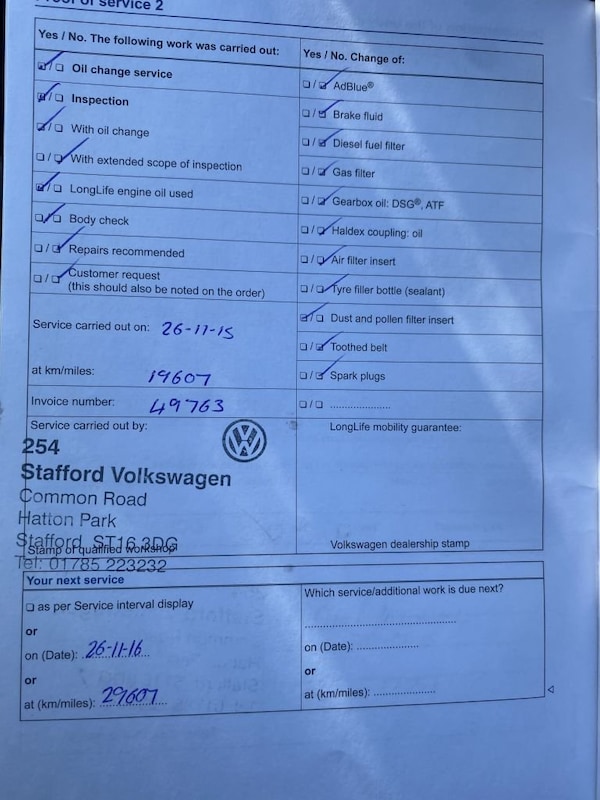 Proof of service 2
Yes / No. The following work was carried out:
Oil change service
Inspection
With oil change
With extended scope of inspection
LongLife engine oil used
Body check
Repairs recommended
Customer request
(this should also be noted on the order)
Service carried out on: 26-11-15
at km/miles: 19607
Invoice number: 49763
Service carried out by:
254
Stafford Volkswagen
Common Road
Hatton Park
Stafford ST16 3DG
Stamp of qualified workshop
Tel: 01785 223232
Yes / No. Change of:
AdBlue®
Brake fluid
Diesel fuel filter
Gas filter
Gearbox oil: DSG®, ATF
Haldex coupling: oil
Air filter insert
Tyre filler bottle (sealant)
Dust and pollen filter insert
Toothed belt
Spark plugs
LongLife mobility guarantee:
Volkswagen dealership stamp
Your next service
as per Service interval display
or
on (Date): 26-11-16
or
at (km/miles): 29607
Which service/additional work is due next?
on (Date):
or
at (km/miles):